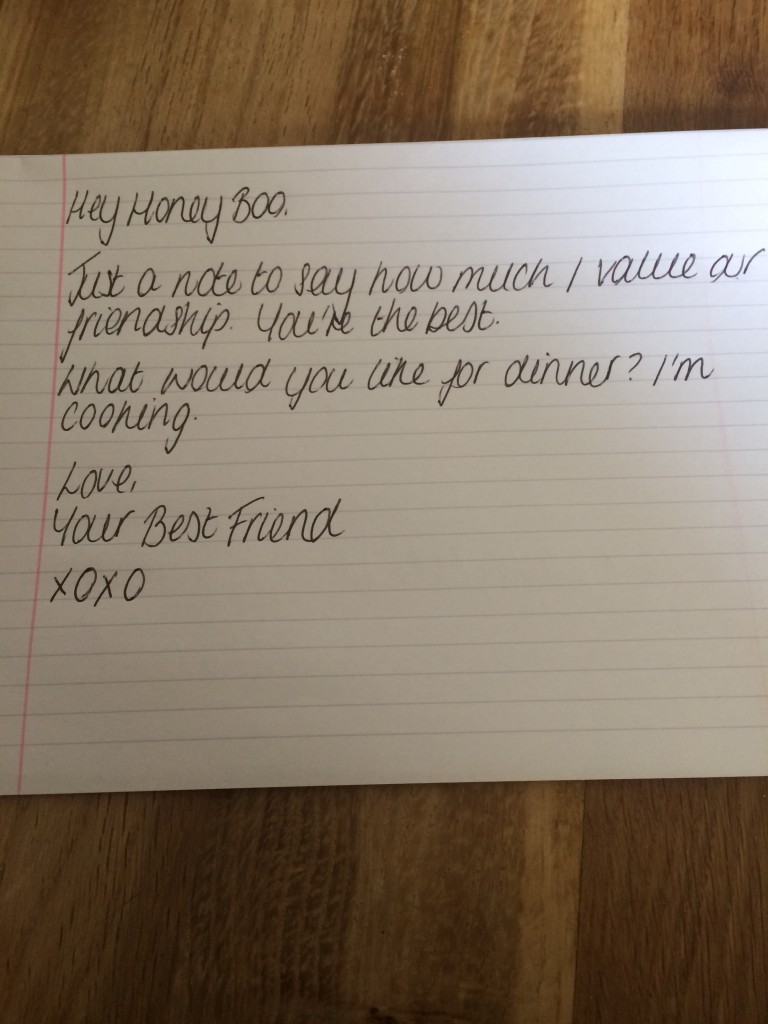 Hey Honey Boo.
Just a note to say how much I value our
friendship. You're the best.
What would you like for dinner? I'm
cooking.
Love,
Your Best Friend
XOXO